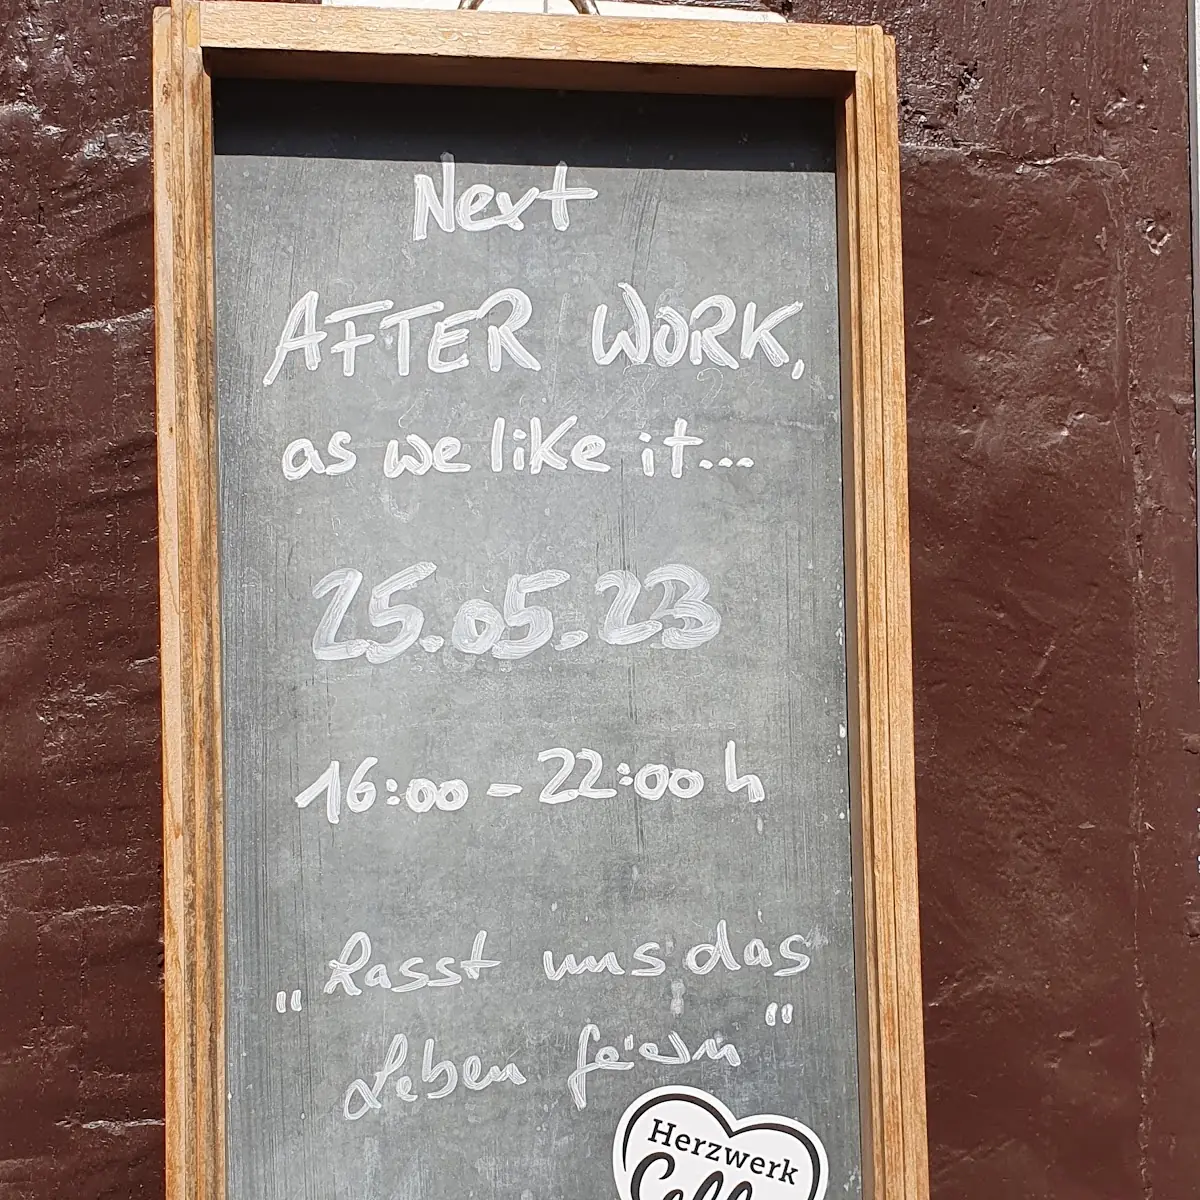 Next
AFTER WORK,
as we like it...
25.05.23
16:00 - 22:00 h
"Lasst uns das
Leben feiern"
Herzwerk